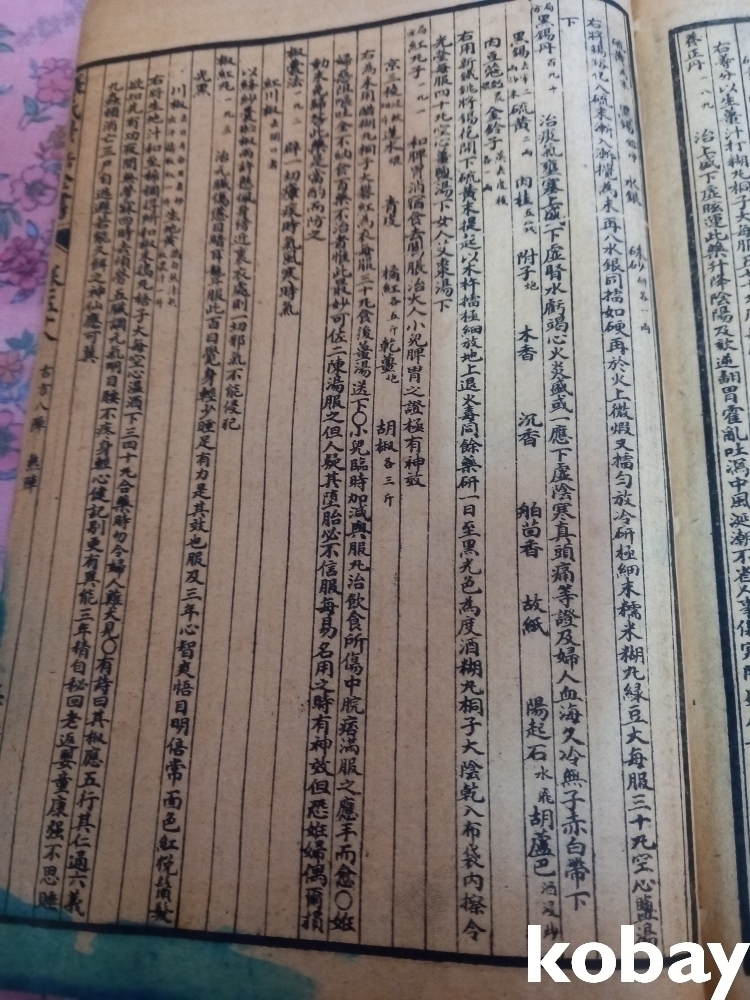 養正丹 一八九 治上盛下虛眩運此藥升降陰陽及欬逆翻胃霍亂吐瀉中風涎潮不省人事傷寒陰
右等分以生薑汁打糊丸桐子大每服
硫黃 黑錫 水銀 硃砂 研各一兩
右將錫熔化入硫末漸入漸攪為末再入水銀同擂如硬再於火上微煅又擂勻放冷研極細末糯米糊丸綠豆大每服三十丸空心鹽湯
下
局方黑錫丹 百九十 治痰氣壅塞上盛下虛腎水虧竭心火炎盛或一應下虛陰寒真頭痛等證及婦人血海久冷無子赤白帶下
黑錫 硫黃 二兩 肉桂 五錢 附子 炮 木香 沉香 舶茴香 故紙 陽起石 水飛 胡蘆巴 酒浸炒
肉豆蔻 金鈴子 蒸去皮核
右用新鐵銚將錫化開下硫黃末提起以木杵擂極細放地上退火毒同餘藥研一日至黑光色為度酒糊丸桐子大陰乾入布袋內擦令
光瑩每服四十丸空心薑鹽湯下女人大棗湯下
局方紅丸子 一九一 和脾胃消宿食去膨脹治大人小兒脾胃之證極有神效
京三稜 蓬朮 煨 青皮 橘紅 各五斤 乾薑 炮 胡椒 各三斤
右為末用醋糊丸桐子大礬紅為衣每服三十丸食後薑湯送下〇小兒臨時加減與服丸治飲食所傷中脘痞滿服之應手而愈〇姙
婦惡阻嘔吐全不納食百藥不治者惟此最妙可佐二陳湯服之但人疑其墮胎必不信服每易名用之時有神效但恐姙婦偶爾損
動未免歸咎此藥是當酌而防之
椒囊法 一九二 辟一切瘴疾時氣風寒時氣
紅川椒 去閉口者
以絳紗囊貯椒兩許懸佩身傍近裏衣處則一切邪氣不能侵犯
椒紅丸 一九三 治元臟傷憊目暗耳聾服此百日覺身輕少睡足有力是其效也服及三年心智爽悟目明倍常面色紅悅鬚髮
光黑
川椒 生地黃
右將生地汁和至稀稠得所和椒末搗丸梧子大每空心溫酒下三四十丸合藥時勿令婦人雞犬見〇有詩曰其椒應五行其仁通六義
欲知先有功夜間無夢寐四時去煩勞五臟調元氣明目腰不疾身輕心健記別更有異能三年精自秘回老返嬰童康強不思睡
九蟲頓消亡三尸自逃避若能久餌之神仙應可冀
景岳全書
卷五十八 古方八陣 熱陣
kobay